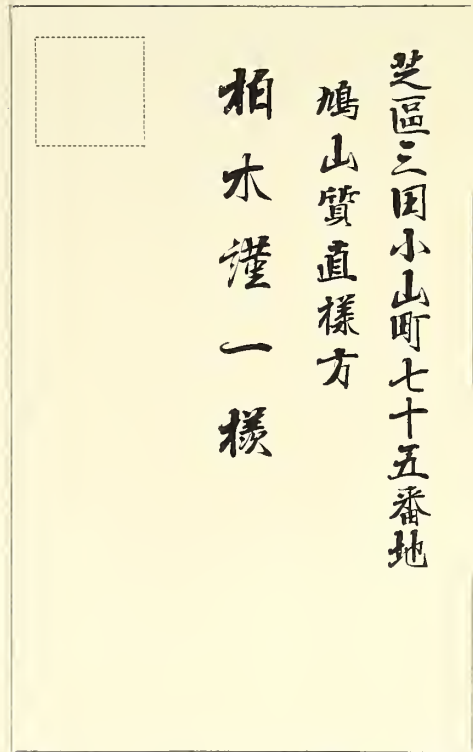 芝區三田小山町七十五番地
鳩山質直樣方
柏木謹一樣